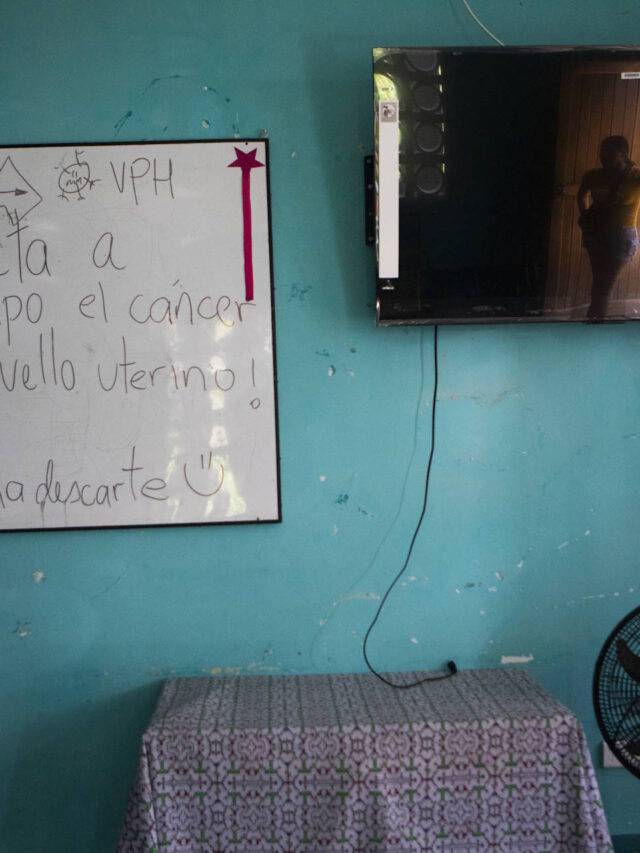 VPH
cta a
po el cáncer
vello uterino!
a descarte